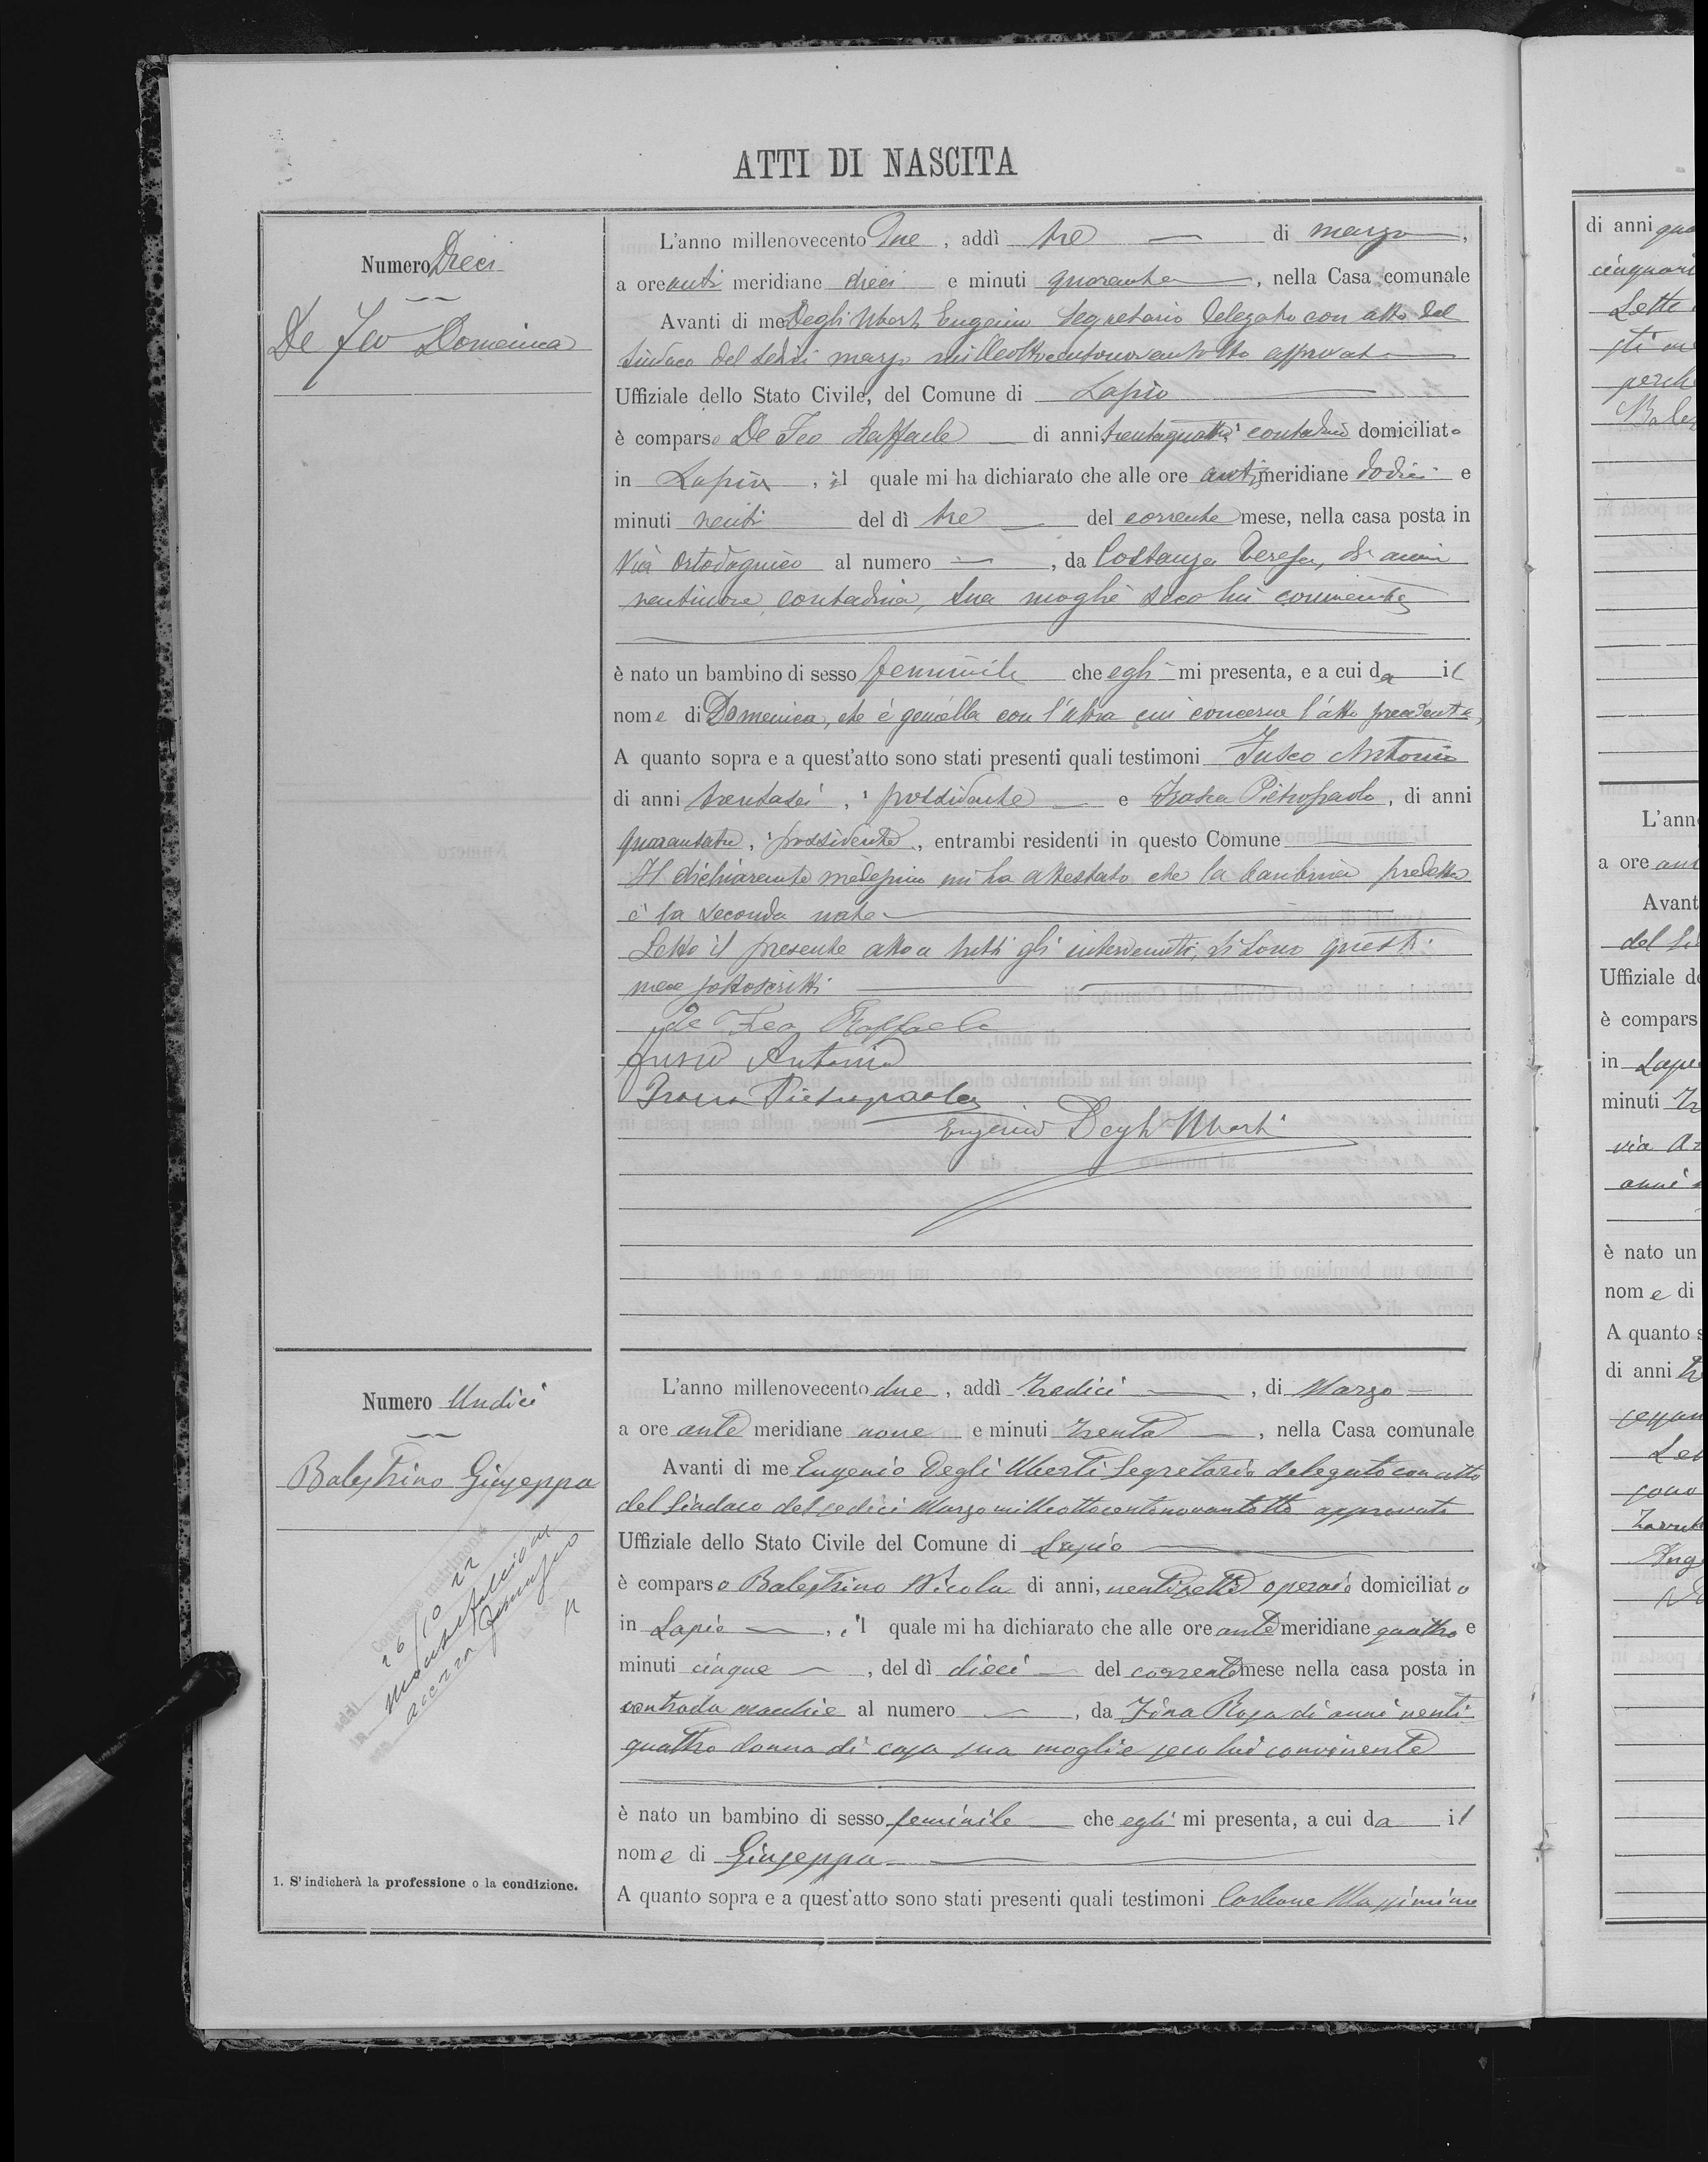 ATTI DI NASCITA
Numero Dieci
De Feo Domenica
L'anno millenovecento Due, addì tre di marzo,
a ore anti meridiane dieci e minuti quaranta, nella Casa comunale
Avanti di me Degli Uberti Eugenio Segretario Delegato con atto del
Sindaco del sedici marzo milleottocentonovantotto approvato
Uffiziale dello Stato Civile, del Comune di Lapio
è comparso De Feo Raffaele di anni trentaquattro contadino domiciliato
in Lapio, il quale mi ha dichiarato che alle ore antimeridiane dodici e
minuti venti del dì tre del corrente mese, nella casa posta in
Via Ortodagnico al numero, da Costanza Teresa, di anni
ventinove contadina, sua moglie seco lui convivente
è nato un bambino di sesso femminile che egli mi presenta, e a cui da il
nome di Domenica, che è gemella con l'altra cui concerne l'atto precedente,
A quanto sopra e a quest'atto sono stati presenti quali testimoni Fusco Antonio
di anni trentasei, possidente e Frasca Pietropaolo, di anni
quarantatre, possidente, entrambi residenti in questo Comune
Il dichiarante medesimo mi ha attestato che la bambina predetta
è la seconda nata
Letto il presente atto a tutti gli intervenuti, si sono questi
meco sottoscritti
De Feo Raffaele
Fusco Antonio
Frasca Pietropaolo
Eugenio Degli Uberti
Numero Undici
Balestrino Giuseppa
26/10 22
L'anno millenovecento due, addì tredici, di Marzo
a ore ante meridiane nove e minuti trenta, nella Casa comunale
Avanti di me Eugenio Degli Uberti Segretario delegato con atto
del Sindaco del sedici Marzo milleottocentonovantotto approvato
Uffiziale dello Stato Civile del Comune di Lapio
è comparso Balestrino Nicola di anni, ventisette operaio domiciliato
in Lapio, il quale mi ha dichiarato che alle ore ante meridiane quattro e
minuti cinque, del dì dieci del corrente mese nella casa posta in
contrada macchie al numero, da Fina Rosa di anni venti
quattro donna di casa sua moglie seco lui convivente
è nato un bambino di sesso feminile che egli mi presenta, a cui da il
nome di Giuseppa
A quanto sopra e a quest'atto sono stati presenti quali testimoni Carbone Massimino
1. S'indicherà la professione o la condizione.